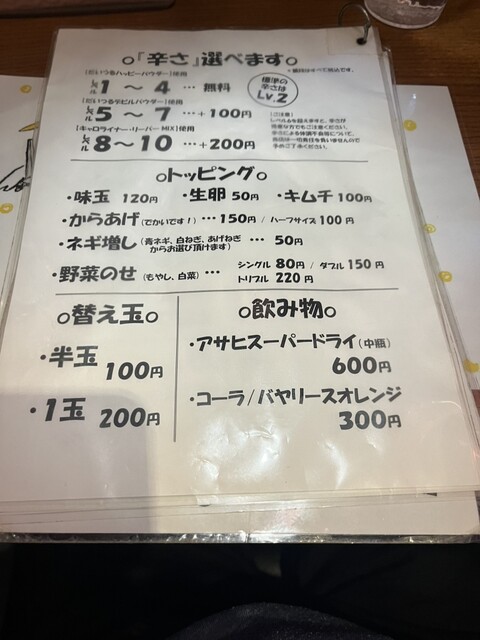 ○「辛さ」選べます○
※価格はすべて税込です。
(だいつるハッピーパウダー)使用
レベル 1 ～ 4 … 無料
標準の辛さは Lv.2
(だいつるデビルパウダー)使用
レベル 5 ～ 7 …+100円
(キャロライナー・リーパーMIX)使用
レベル 8～10 …+200円
(ご注意)
○トッピング○
・味玉 120円 ・生卵 50円 ・キムチ 100円
・からあげ(でかいです!)…150円 / ハーフサイズ 100円
・ネギ増し(青ネギ、白ねぎ、あげねぎからお選び頂けます) … 50円
・野菜のせ(もやし、白菜)… シングル 80円 / ダブル 150円
トリプル 220円
○替え玉○
・半玉 100円
・1玉 200円
○飲み物○
・アサヒスーパードライ(中瓶)
600円
・コーラ/バヤリースオレンジ
300円